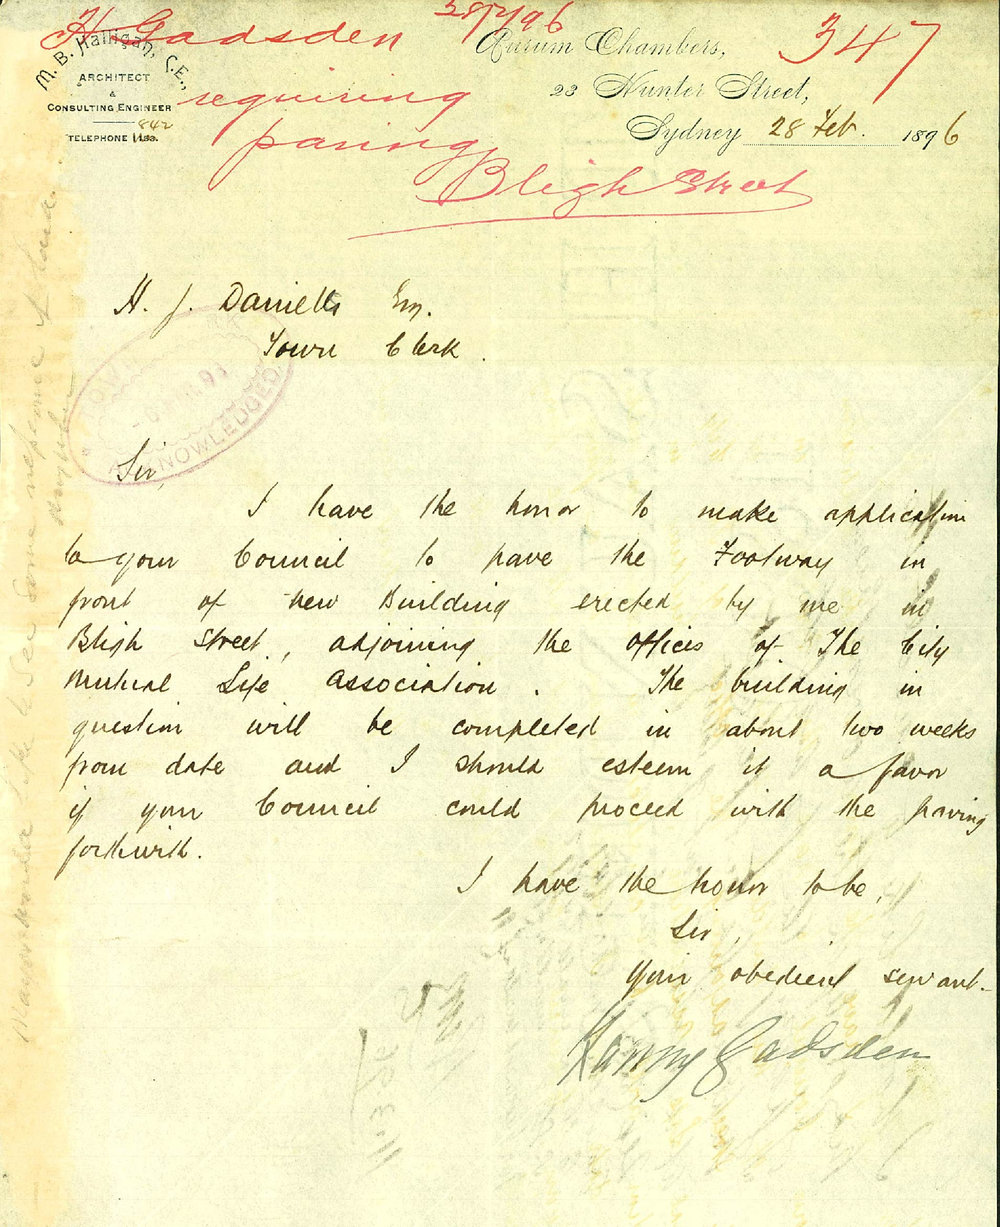 H Gadsden 28/2/96
requiring
paving
Bligh Street
347
M. B. Halligan, C.E.,
ARCHITECT
&
CONSULTING ENGINEER
842
TELEPHONE
Aurum Chambers,
23 Hunter Street,
Sydney 28 Feb. 1896
H. J. Daniells Esq.
Town Clerk.
TOW
ACKNOWLEDGED
Sir,
I have the honor to make application
to your Council to pave the Footway in
front of new Building erected by me in
Bligh Street, adjoining the offices of The City
Mutual Life Association. The building in
question will be completed in about two weeks
from date and I should esteem it a favor
if your Council could proceed with the paving
forthwith.
I have the honor to be,
Sir,
Your obedient servant.
Gadsden
Mayor would like to see some